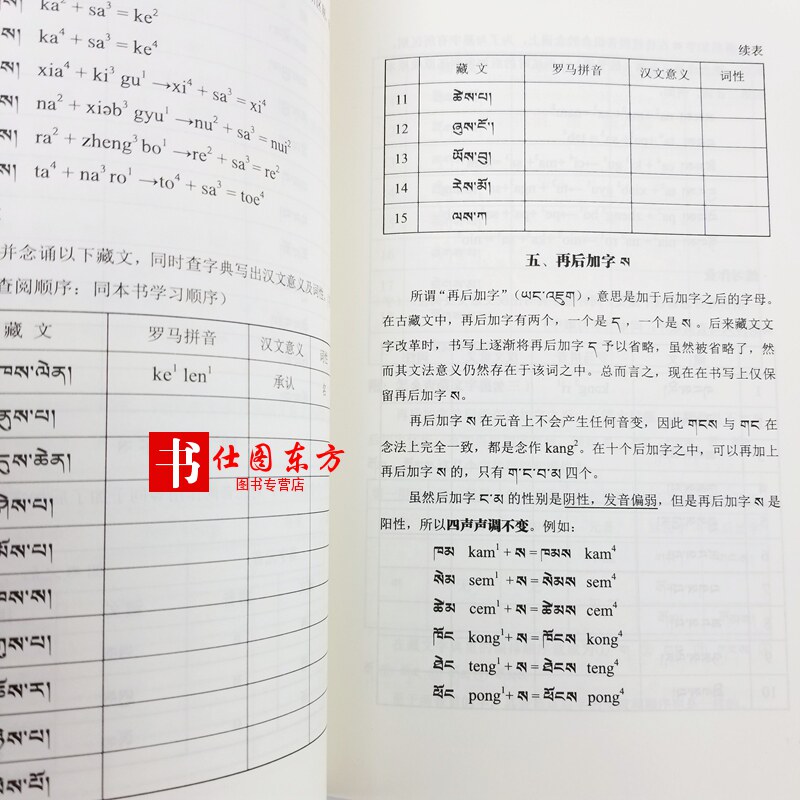 ས། ka² + sa³ = ke²
ས། ka⁴ + sa³ = ke⁴
ས། xia⁴ + ki³ gu¹ →xi⁴ + sa³ = xi⁴
ས། na² + xiəb³ gyu¹ →nu² + sa³ = nui²
ས། ra² + zheng³ bo¹ →re² + sa³ = re²
ས། ta⁴ + na³ ro¹ →to⁴ + sa³ = toe⁴
并念诵以下藏文，同时查字典写出汉文意义及词性。
查阅顺序：同本书学习顺序）
藏 文 罗马拼音 汉文意义 词性
ཁས་ལེན། ke¹ len¹ 承认
ནུས་པ།
དུས་ཆེན།
书 仕图东方
图书专营店
续表
藏 文 罗马拼音 汉文意义 词性
11 ཚེས་པ།
12 ཞུས་ངོ་།
13 ཡོས་བུ།
14 རིས་མོ།
15 ལས་ཀ
五、再后加字 ས
所谓“再后加字”（ཡང་འཇུག），意思是加于后加字之后的字母。
在古藏文中，再后加字有两个，一个是 ད，一个是 ས。后来藏文文
字改革时，书写上逐渐将再后加字 ད 予以省略，虽然被省略了，然
而其文法意义仍然存在于该词之中。总而言之，现在在书写上仅保
留再后加字 ས。
再后加字 ས 在元音上不会产生任何音变，因此 གངས 与 གང 在
念法上完全一致，都是念作 kang²。在十个后加字之中，可以再加上
再后加字 ས 的，只有 ག་ང་བ་མ 四个。
虽然后加字 ང་མ 的性别是阴性，发音偏弱，但是再后加字 ས 是
阳性，所以四声声调不变。例如：
ཁམ kam¹ + ས = ཁམས kam⁴
སེམ sem¹ + ས = སེམས sem⁴
ཚེམ cem¹ + ས = ཚེམས cem⁴
ཁོང kong¹ + ས = ཁོངས kong⁴
ཐེང teng¹ + ས = ཐེངས teng⁴
ཕོང pong¹ + ས = ཕོངས pong⁴